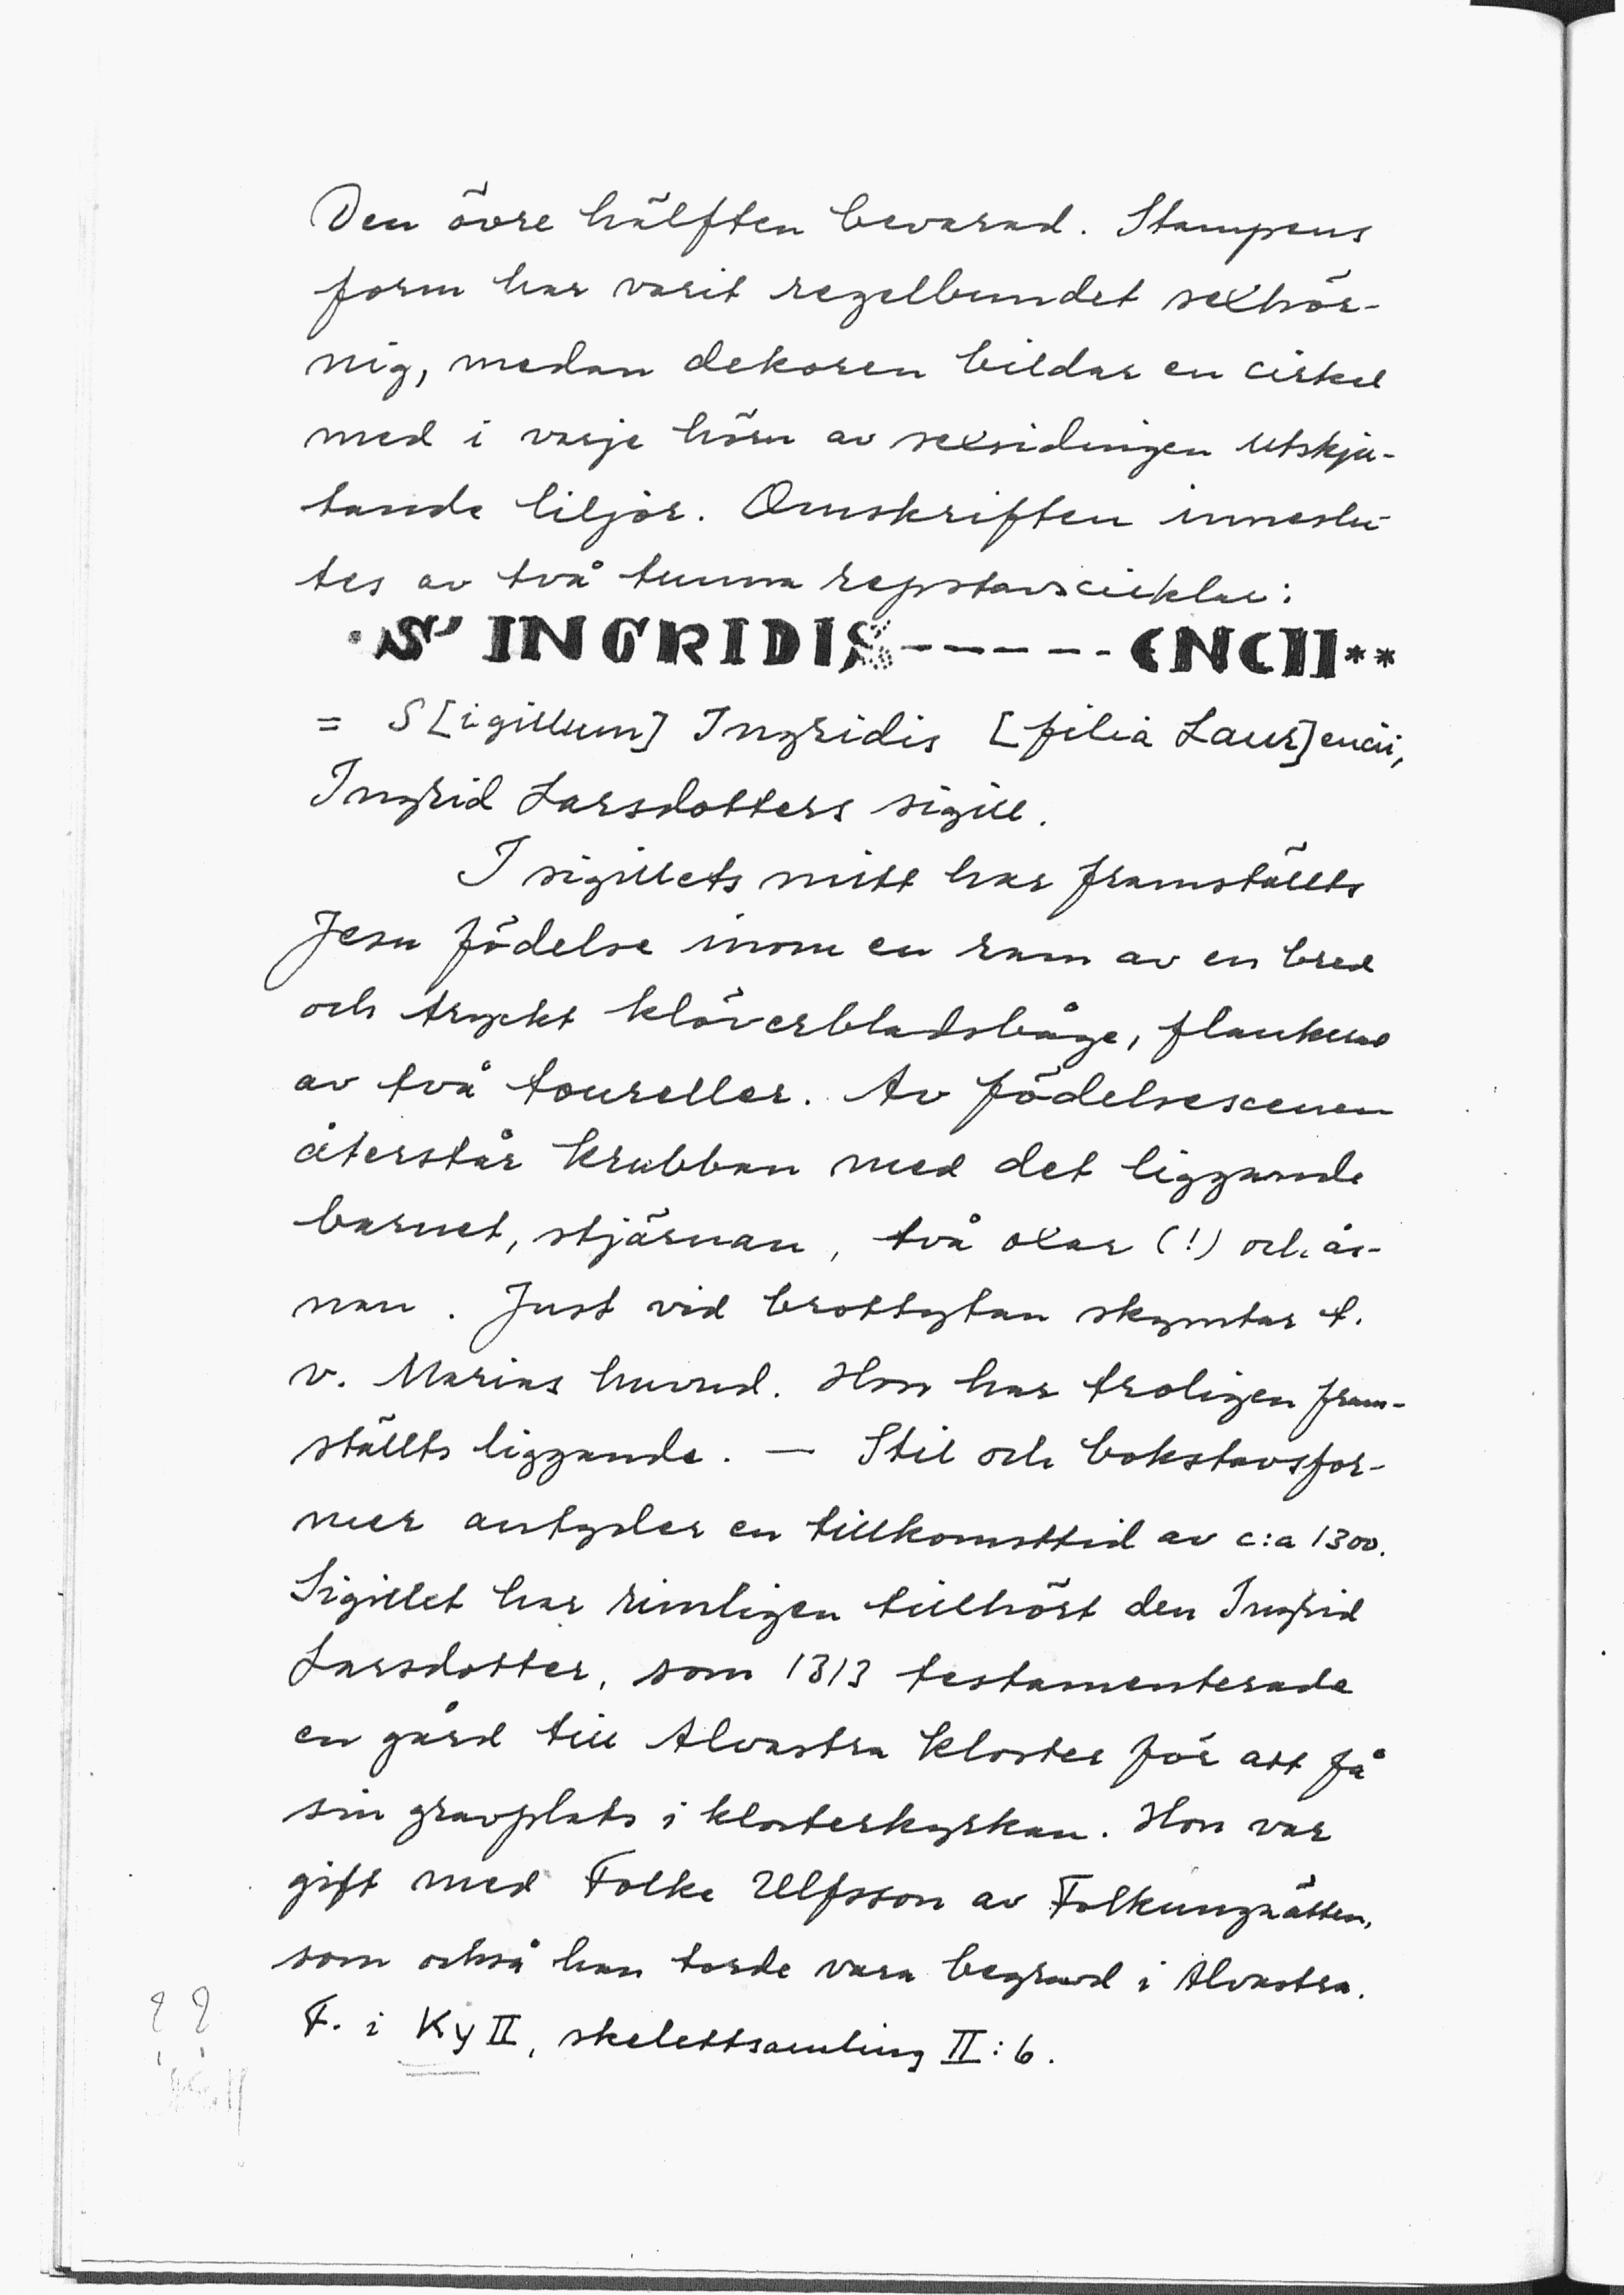 Den övre hälften bevarad. Stampens
form har varit regelbundet sexhör-
nig, medan dekoren bildar en cirkel
med i varje hörn av sexsidingen utskju-
tande liljor. Omskriften inneslu-
tes av två tunna repstavscirklar:
·S' INGRIDIS------ENCII**
= S[igillum] Ingridis [filia Laur]encii,
Ingrid Larsdotters sigill.
I sigillets mitt har framställts
Jesu födelse inom en ram av en bred
och tryckt klöverbladsbåge, flankerad
av två toureller. Av födelsescenen
återstår krubban med det liggande
barnet, stjärnan, två oxar (!) och ås-
nan. Just vid brottytan skymtar t.
v. Marias huvud. Hon har troligen fram-
ställts liggande. — Stil och bokstavsfor-
mer antyder en tillkomsttid av c:a 1300.
Sigillet har rimligen tillhört den Ingrid
Larsdotter, som 1313 testamenterade
en gård till Alvastra kloster för att få
sin gravplats i klosterkyrkan. Hon var
gift med Folke Ulfsson av Folkungaätten,
som också han torde vara begravd i Alvastra.
F. i Ky II, skelettsamling II:6.